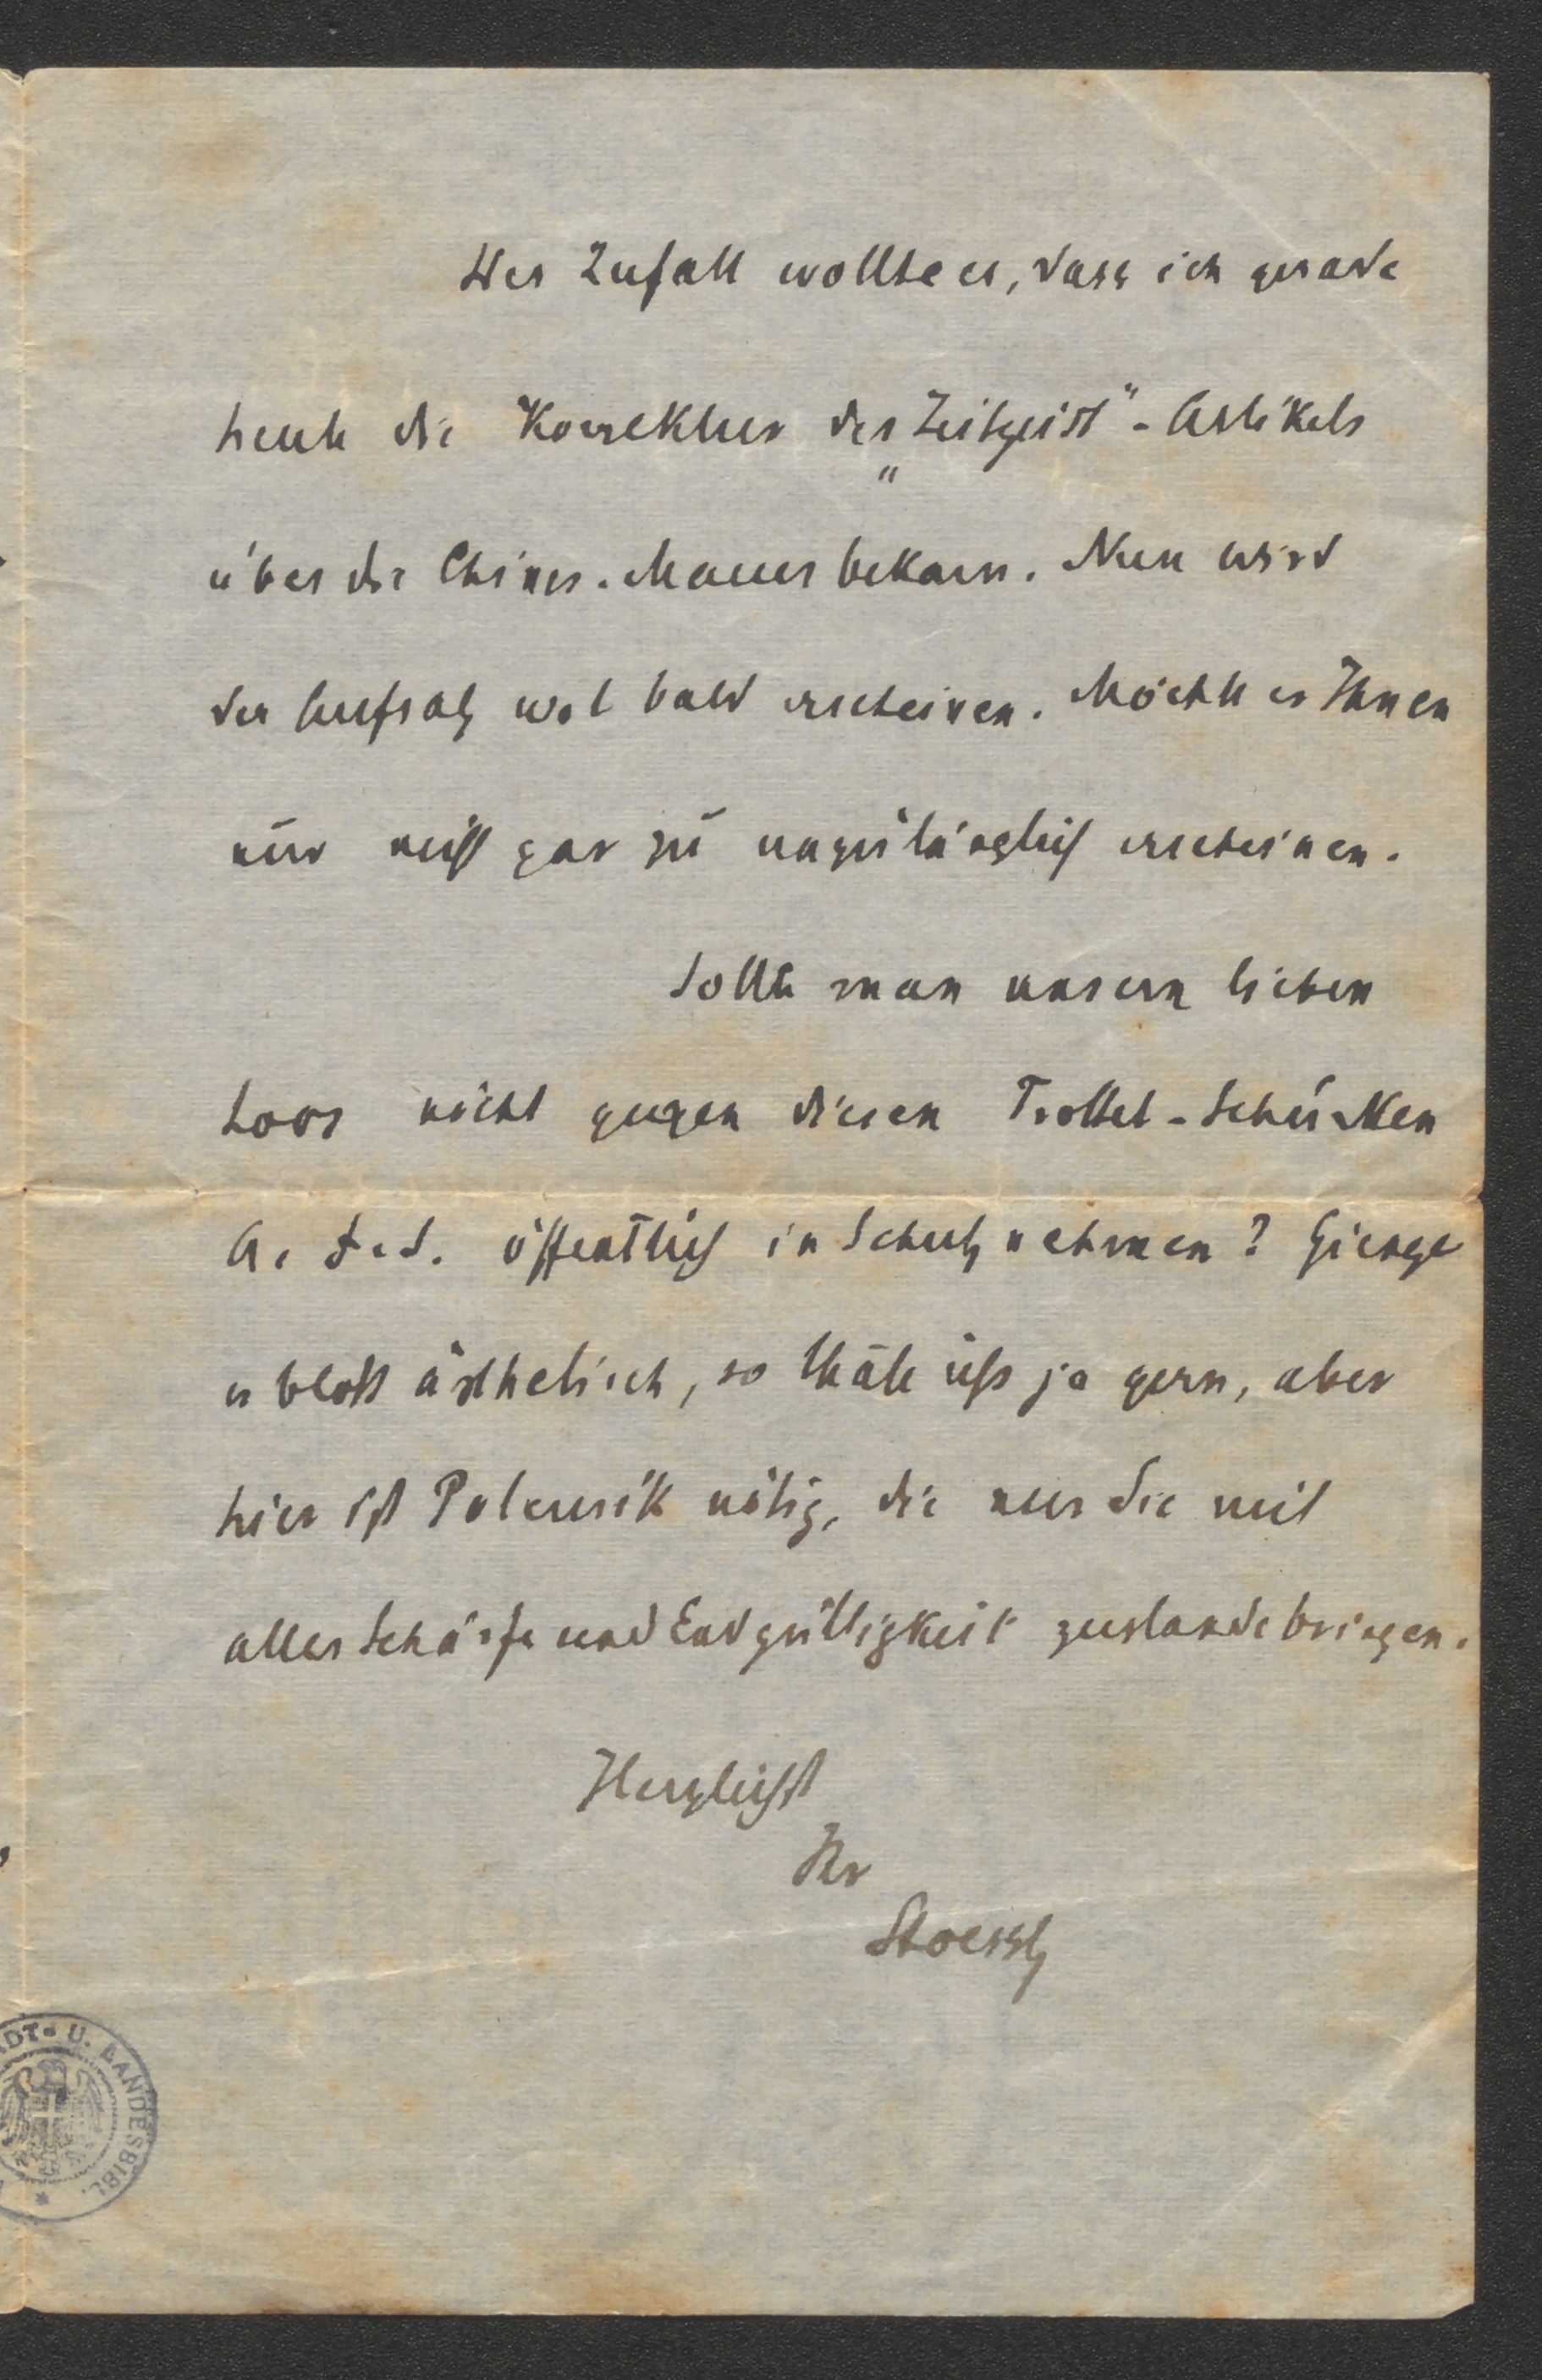 Der Zufall wollte es, dass ich gerade
heute die Korrektur des „Zeitgeist"-Artikels
über die Chines. Mauer bekam. Nun wird
der Aufsatz wol bald erscheinen. Möchte er Ihnen
nur nicht gar zu unzulänglich erscheinen.
Sollte man unsern lieben
Loos nicht gegen diesen Trottel-Schurken
A. F. S. öffentlich in Schutz nehmen? Gienge
es bloß ästhetisch, so thäte ichs ja gern, aber
hier ist Polemik nötig, die nur Sie mit
aller Schärfe und Endgültigkeit zustandebringen.
Herzlichst
Ihr
Stoessl
ADT- U. LANDESBIBL.